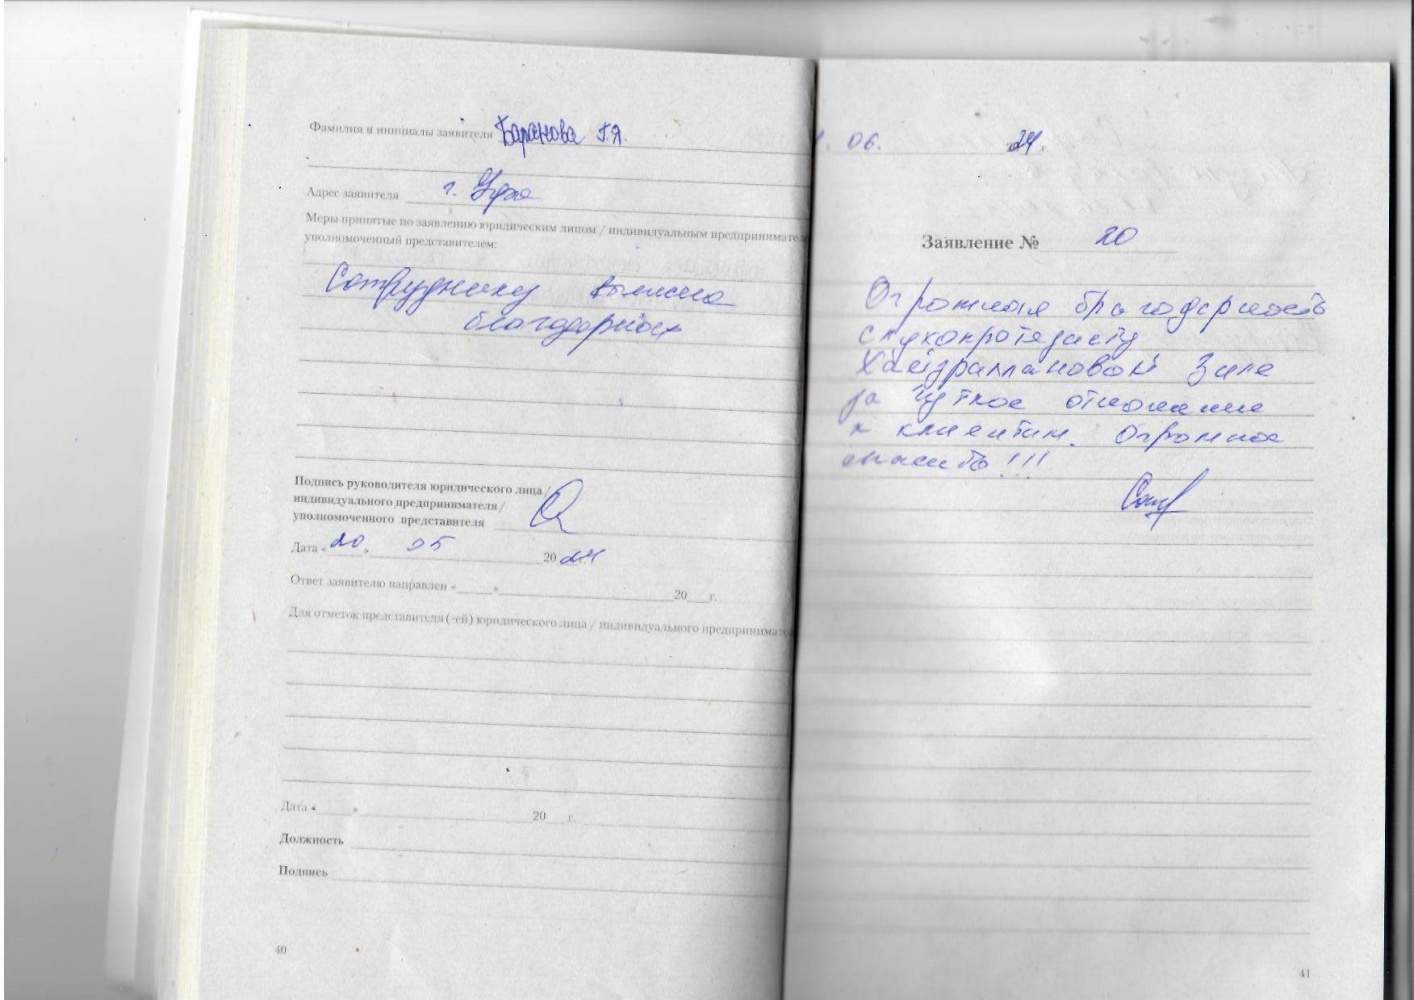 Фамилия и инициалы заявителя Баранова Г.Я.
Адрес заявителя г. Уфа
Меры принятые по заявлению юридическим лицом / индивидуальным предпринимател
уполномоченный представителем:
Сотруднику
благодарность
Подпись руководителя юридического лица /
индивидуального предпринимателя /
уполномоченного представителя
Дата « 20 » 05 20 24
Ответ заявителю направлен «      » 20    г.
Для отметок представителя (-ей) юридического лица / индивидуального предпринимате
Дата «      » 20    г.
Должность
Подпись
40
. 06. 24.
Заявление № 20
Огромная благодарность
слухопротезисту
Зиле
за чуткое отношение
к клиентам. Огромное
спасибо!!!
41